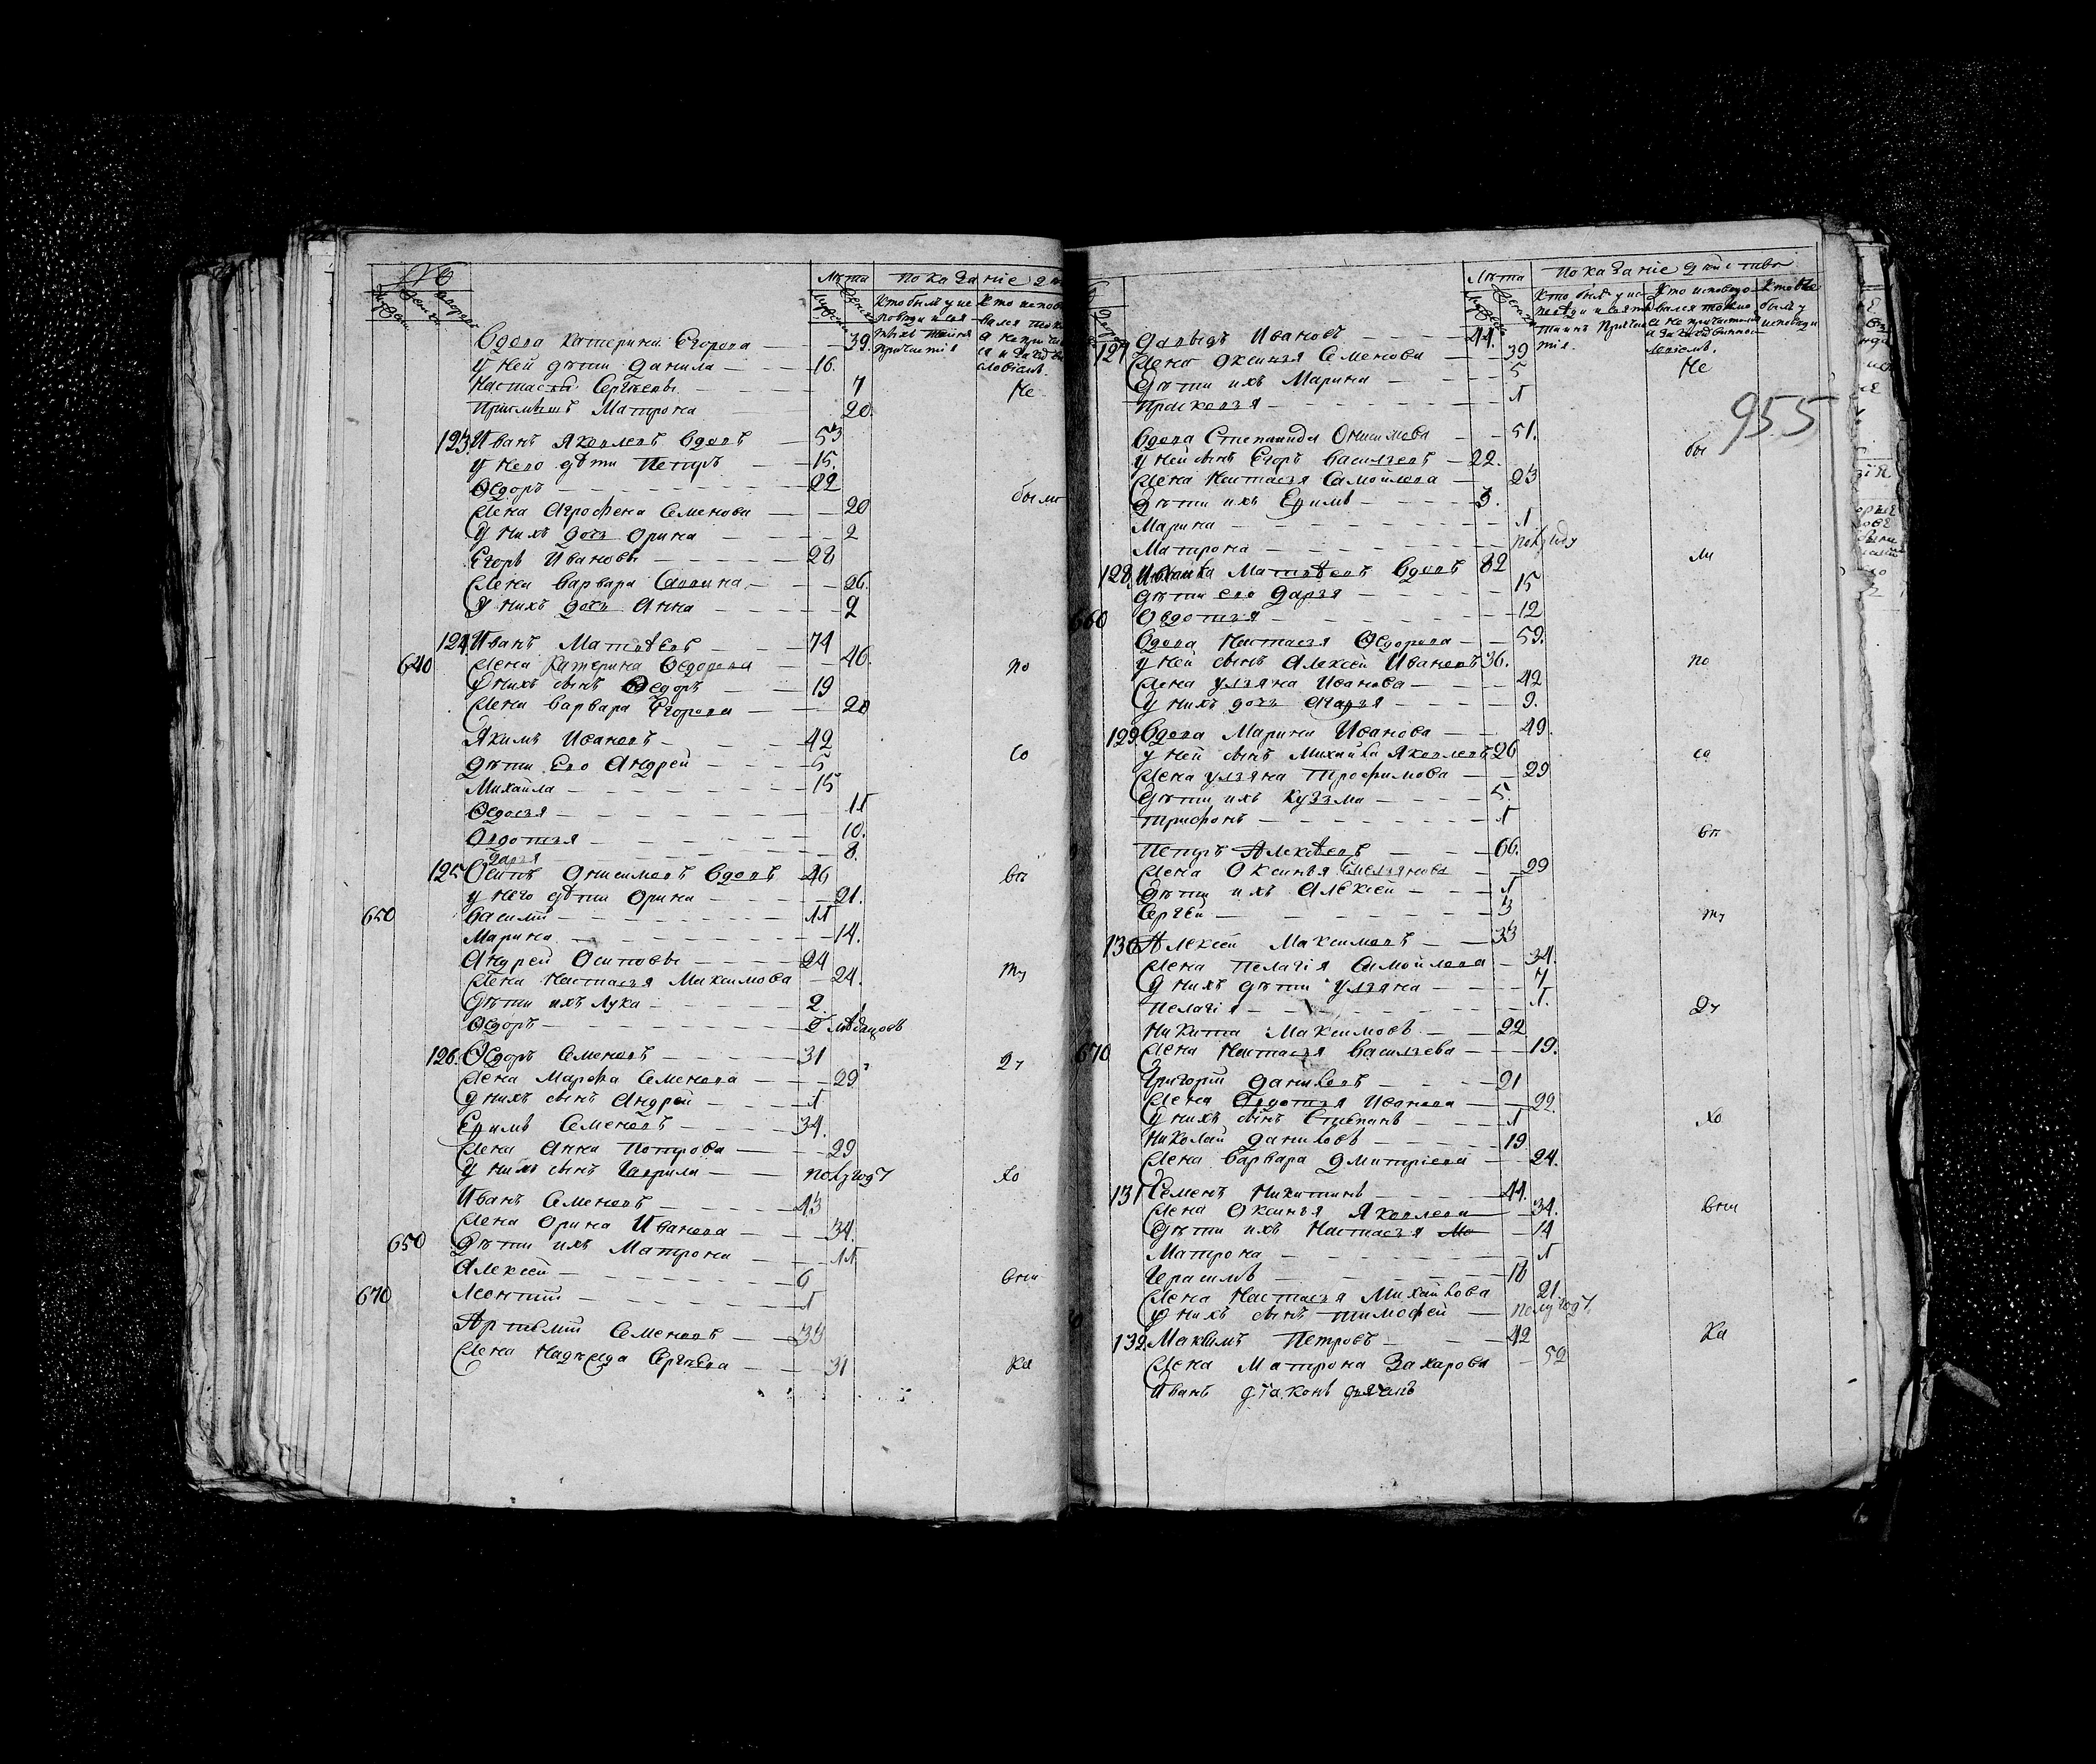 №
Лѣта
Показаніе
Вдова Катерина Егорова 39.
у ней дѣти Данила 16.
Настасья Сергѣевы 7 Не
Матрона 20.
123. Иванъ Яковлевъ вдовъ 53
у него дѣти Петръ 15.
Ѳедоръ 22 были
Жена Агрофена Семенова 20
у нихъ дочь Орина 2
Егоръ Ивановъ 28
Жена Варвара Саввина 26.
у нихъ дочь Анна 2
124. Иванъ Матвѣевъ 74
640 Жена Катерина Ѳедорова 46. по
у нихъ сынъ Ѳедоръ 19
Жена Варвара Егорова 20
Якимъ Ивановъ 42 со
дѣти его Андрей 5
Михайла 15
Ѳедосья 11
Овдотья 10.
Дарья 8.
125 Осипъ Онисимовъ вдовъ 46 въ
у него дѣти Орина 21.
650 Василій 11
Марина 14.
Андрей Осиповъ 24
Жена Настасья Максимова 24. ту
Дѣти ихъ Лука 2.
Ѳедоръ
126. Ѳедоръ Семеновъ 31 ду
Жена Марфа Семенова 29
у нихъ сынъ Андрей 1
Ефимъ Семеновъ 34.
Жена Анна Петрова 29
у нихъ сынъ Гаврила полугоду хо
Иванъ Семеновъ 43
Жена Орина Иванова 34.
650 Дѣти ихъ Матрона 11
Алексей 6 вни
670 Леонтій 1
Артемій Семеновъ 33
Жена Надежда Сергѣева 31 ка
Лѣта
Показаніе дѣйства
955
127 Давыдъ Ивановъ 44.
Жена Оксинья Семенова 39 Не
Дѣти ихъ Марина 5
Прасковья 1
Вдова Степанида Онисимова 51. бы
у ней сынъ Егоръ Васильевъ 22.
Жена Настасья Самойлова 23
Дѣти ихъ Ефимъ 3.
Марина 1
Матрона полугоду
128. Матвѣевъ вдовъ 82 ли
дѣти его Дарья 15
660 Овдотья 12
Вдова Настасья Ѳедорова 59.
у ней сынъ Алексей Ивановъ 36. по
Жена Ульяна Иванова 42
у нихъ дочь Агафья 9.
129. Вдова Марина Иванова 49.
у ней сынъ Михайла Яковлевъ 26 со
Жена Ульяна Трофимова 29
Дѣти ихъ Кузьма 5.
Трифонъ 1 въ
Петръ Алексѣевъ 66.
Жена Оксинья Емельянова 29
Дѣти ихъ Алексей 1
Сергей 3 ту
130 Алексей Максимовъ 33
Жена Пелагія Самойлова 34.
у нихъ дѣти Ульяна 7
Пелагія 1. ду
Никита Максимовъ 22
670 Жена Настасья Васильева 19.
Григорій Даниловъ 21
Жена Авдотья Иванова 22.
у нихъ сынъ Степанъ 1 хо
Николай Даниловъ 19
Жена Варвара Дмитріева 24.
131 Семенъ Никитинъ 44.
Жена Оксинья Яковлева 34. вни
Дѣти ихъ Настасья 14
Матрона 1
Герасимъ 18
Жена Настасья Михайлова 21.
у нихъ сынъ Тимофей полугоду
132. Максимъ Петровъ 42 ка
Жена Матрона Захарова 52
Иванъ діаконъ